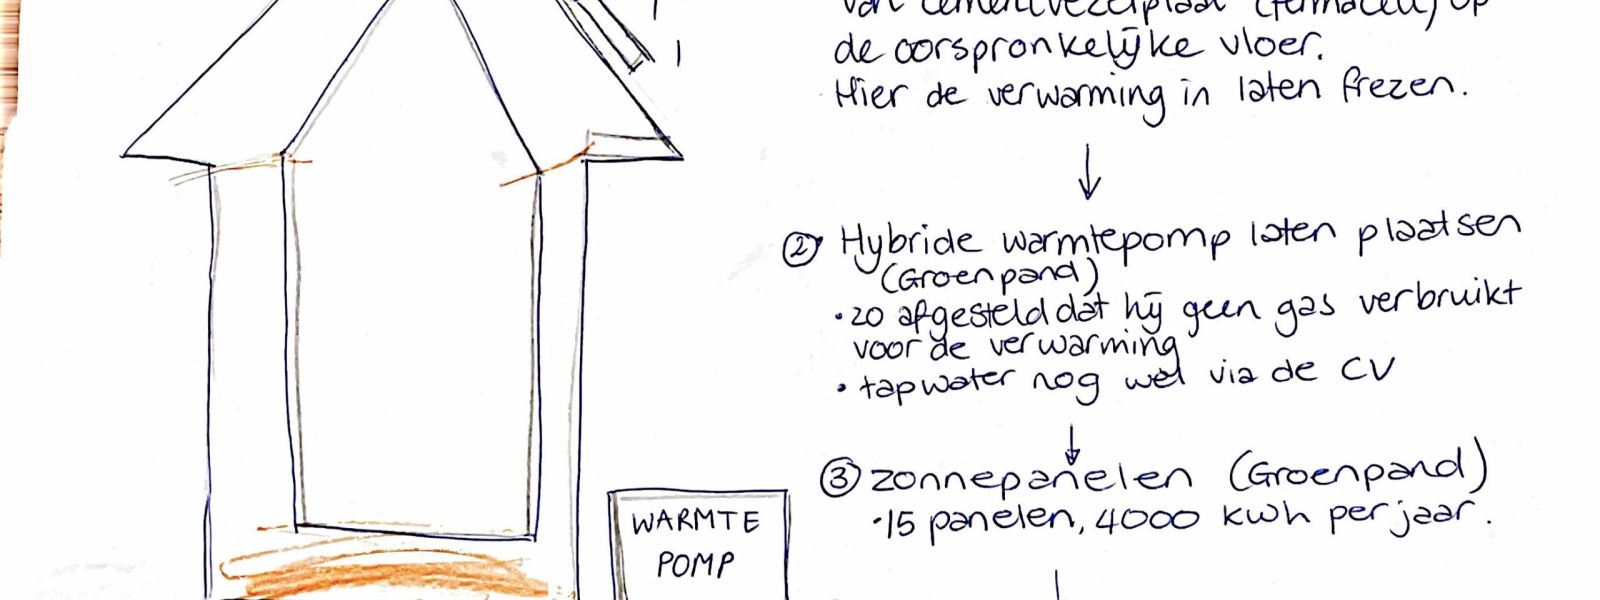 van cementvezelplaat (fermacell) op
de oorspronkelijke vloer.
Hier de verwarming in laten frezen.
② Hybride warmtepomp laten plaatsen
(Groenpand)
• zo afgesteld dat hij geen gas verbruikt
voor de verwarming
• tapwater nog wel via de CV
③ zonnepanelen (Groenpand)
• 15 panelen, 4000 kwh per jaar.
WARMTE
POMP